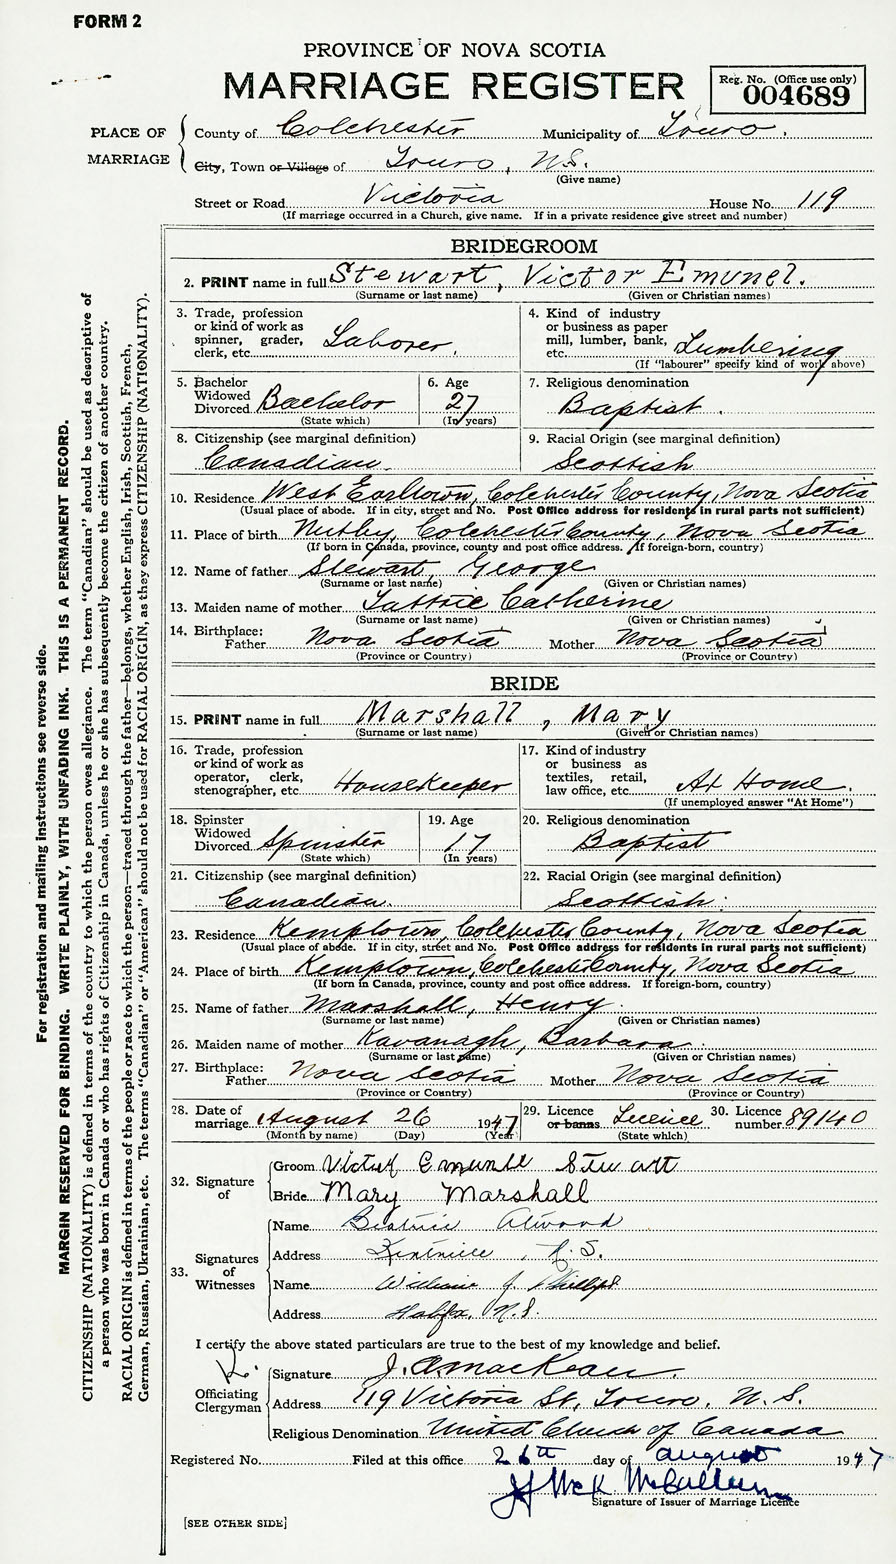 FORM 2
PROVINCE OF NOVA SCOTIA
MARRIAGE REGISTER
Reg. No. (Office use only)
004689
PLACE OF MARRIAGE
County of Colchester Municipality of Truro.
City, Town or Village of Truro, N.S.
(Give name)
Street or Road Victoria House No. 119
(If marriage occurred in a Church, give name. If in a private residence give street and number)
BRIDEGROOM
2. PRINT name in full Stewart, Victor Emunel.
(Surname or last name) (Given or Christian names)
3. Trade, profession or kind of work as spinner, grader, clerk, etc. Laborer.
4. Kind of industry or business as paper mill, lumber, bank, etc. Lumbering
(If "labourer" specify kind of work above)
5. Bachelor Widowed Divorced Bachelor
(State which)
6. Age 27
(In years)
7. Religious denomination
Baptist.
8. Citizenship (see marginal definition)
Canadian.
9. Racial Origin (see marginal definition)
Scottish
10. Residence West Earltown, Colchester County, Nova Scotia
(Usual place of abode. If in city, street and No. Post Office address for residents in rural parts not sufficient)
11. Place of birth Nutby, Colchester County, Nova Scotia
(If born in Canada, province, county and post office address. If foreign-born, country)
12. Name of father Stewart, George
(Surname or last name) (Given or Christian names)
13. Maiden name of mother Tattrie Catherine
(Surname or last name) (Given or Christian names)
14. Birthplace: Father Nova Scotia Mother Nova Scotia
(Province or Country) (Province or Country)
BRIDE
15. PRINT name in full Marshall, Mary
(Surname or last name) (Given or Christian names)
16. Trade, profession or kind of work as operator, clerk, stenographer, etc Housekeeper
17. Kind of industry or business as textiles, retail, law office, etc. At Home.
(If unemployed answer "At Home")
18. Spinster Widowed Divorced Spinister
(State which)
19. Age 17
(In years)
20. Religious denomination
Baptist
21. Citizenship (see marginal definition)
Canadian.
22. Racial Origin (see marginal definition)
Scottish.
23. Residence Kemptown, Colchester County, Nova Scotia
(Usual place of abode. If in city, street and No. Post Office address for residents in rural parts not sufficient)
24. Place of birth Kemptown, Colchester County, Nova Scotia
(If born in Canada, province, county and post office address. If foreign-born, country)
25. Name of father Marshall, Henry.
(Surname or last name) (Given or Christian names)
26. Maiden name of mother Kavanagh, Barbara.
(Surname or last name) (Given or Christian names)
27. Birthplace: Father Nova Scotia Mother Nova Scotia
(Province or Country) (Province or Country)
28. Date of marriage August 26 1947
(Month by name) (Day) (Year)
29. Licence or banns Licence
(State which)
30. Licence number 89140
32. Signature of
Groom Victor Emunel Stewart
Bride Mary Marshall
33. Signatures of Witnesses
Name Beatrice Atwood
Address N.S.
Name William J. Phillips
Address Halifax, N.S.
I certify the above stated particulars are true to the best of my knowledge and belief.
Officiating Clergyman
Signature J. A. MacKean.
Address 119 Victoria St, Truro, N.S.
Religious Denomination United Church of Canada
Registered No. Filed at this office 26th day of August 1947
McCallum
Signature of Issuer of Marriage Licence
[SEE OTHER SIDE]
For registration and mailing instructions see reverse side.
MARGIN RESERVED FOR BINDING. WRITE PLAINLY, WITH UNFADING INK. THIS IS A PERMANENT RECORD.
CITIZENSHIP (NATIONALITY) is defined in terms of the country to which the person owes allegiance. The term "Canadian" should be used as descriptive of
a person who was born in Canada or who has rights of Citizenship in Canada, unless he or she has subsequently become the citizen of another country.
RACIAL ORIGIN is defined in terms of the people or race to which the person—traced through the father—belongs, whether English, Irish, Scottish, French,
German, Russian, Ukrainian, etc. The terms "Canadian" or "American" should not be used for RACIAL ORIGIN, as they express CITIZENSHIP (NATIONALITY).